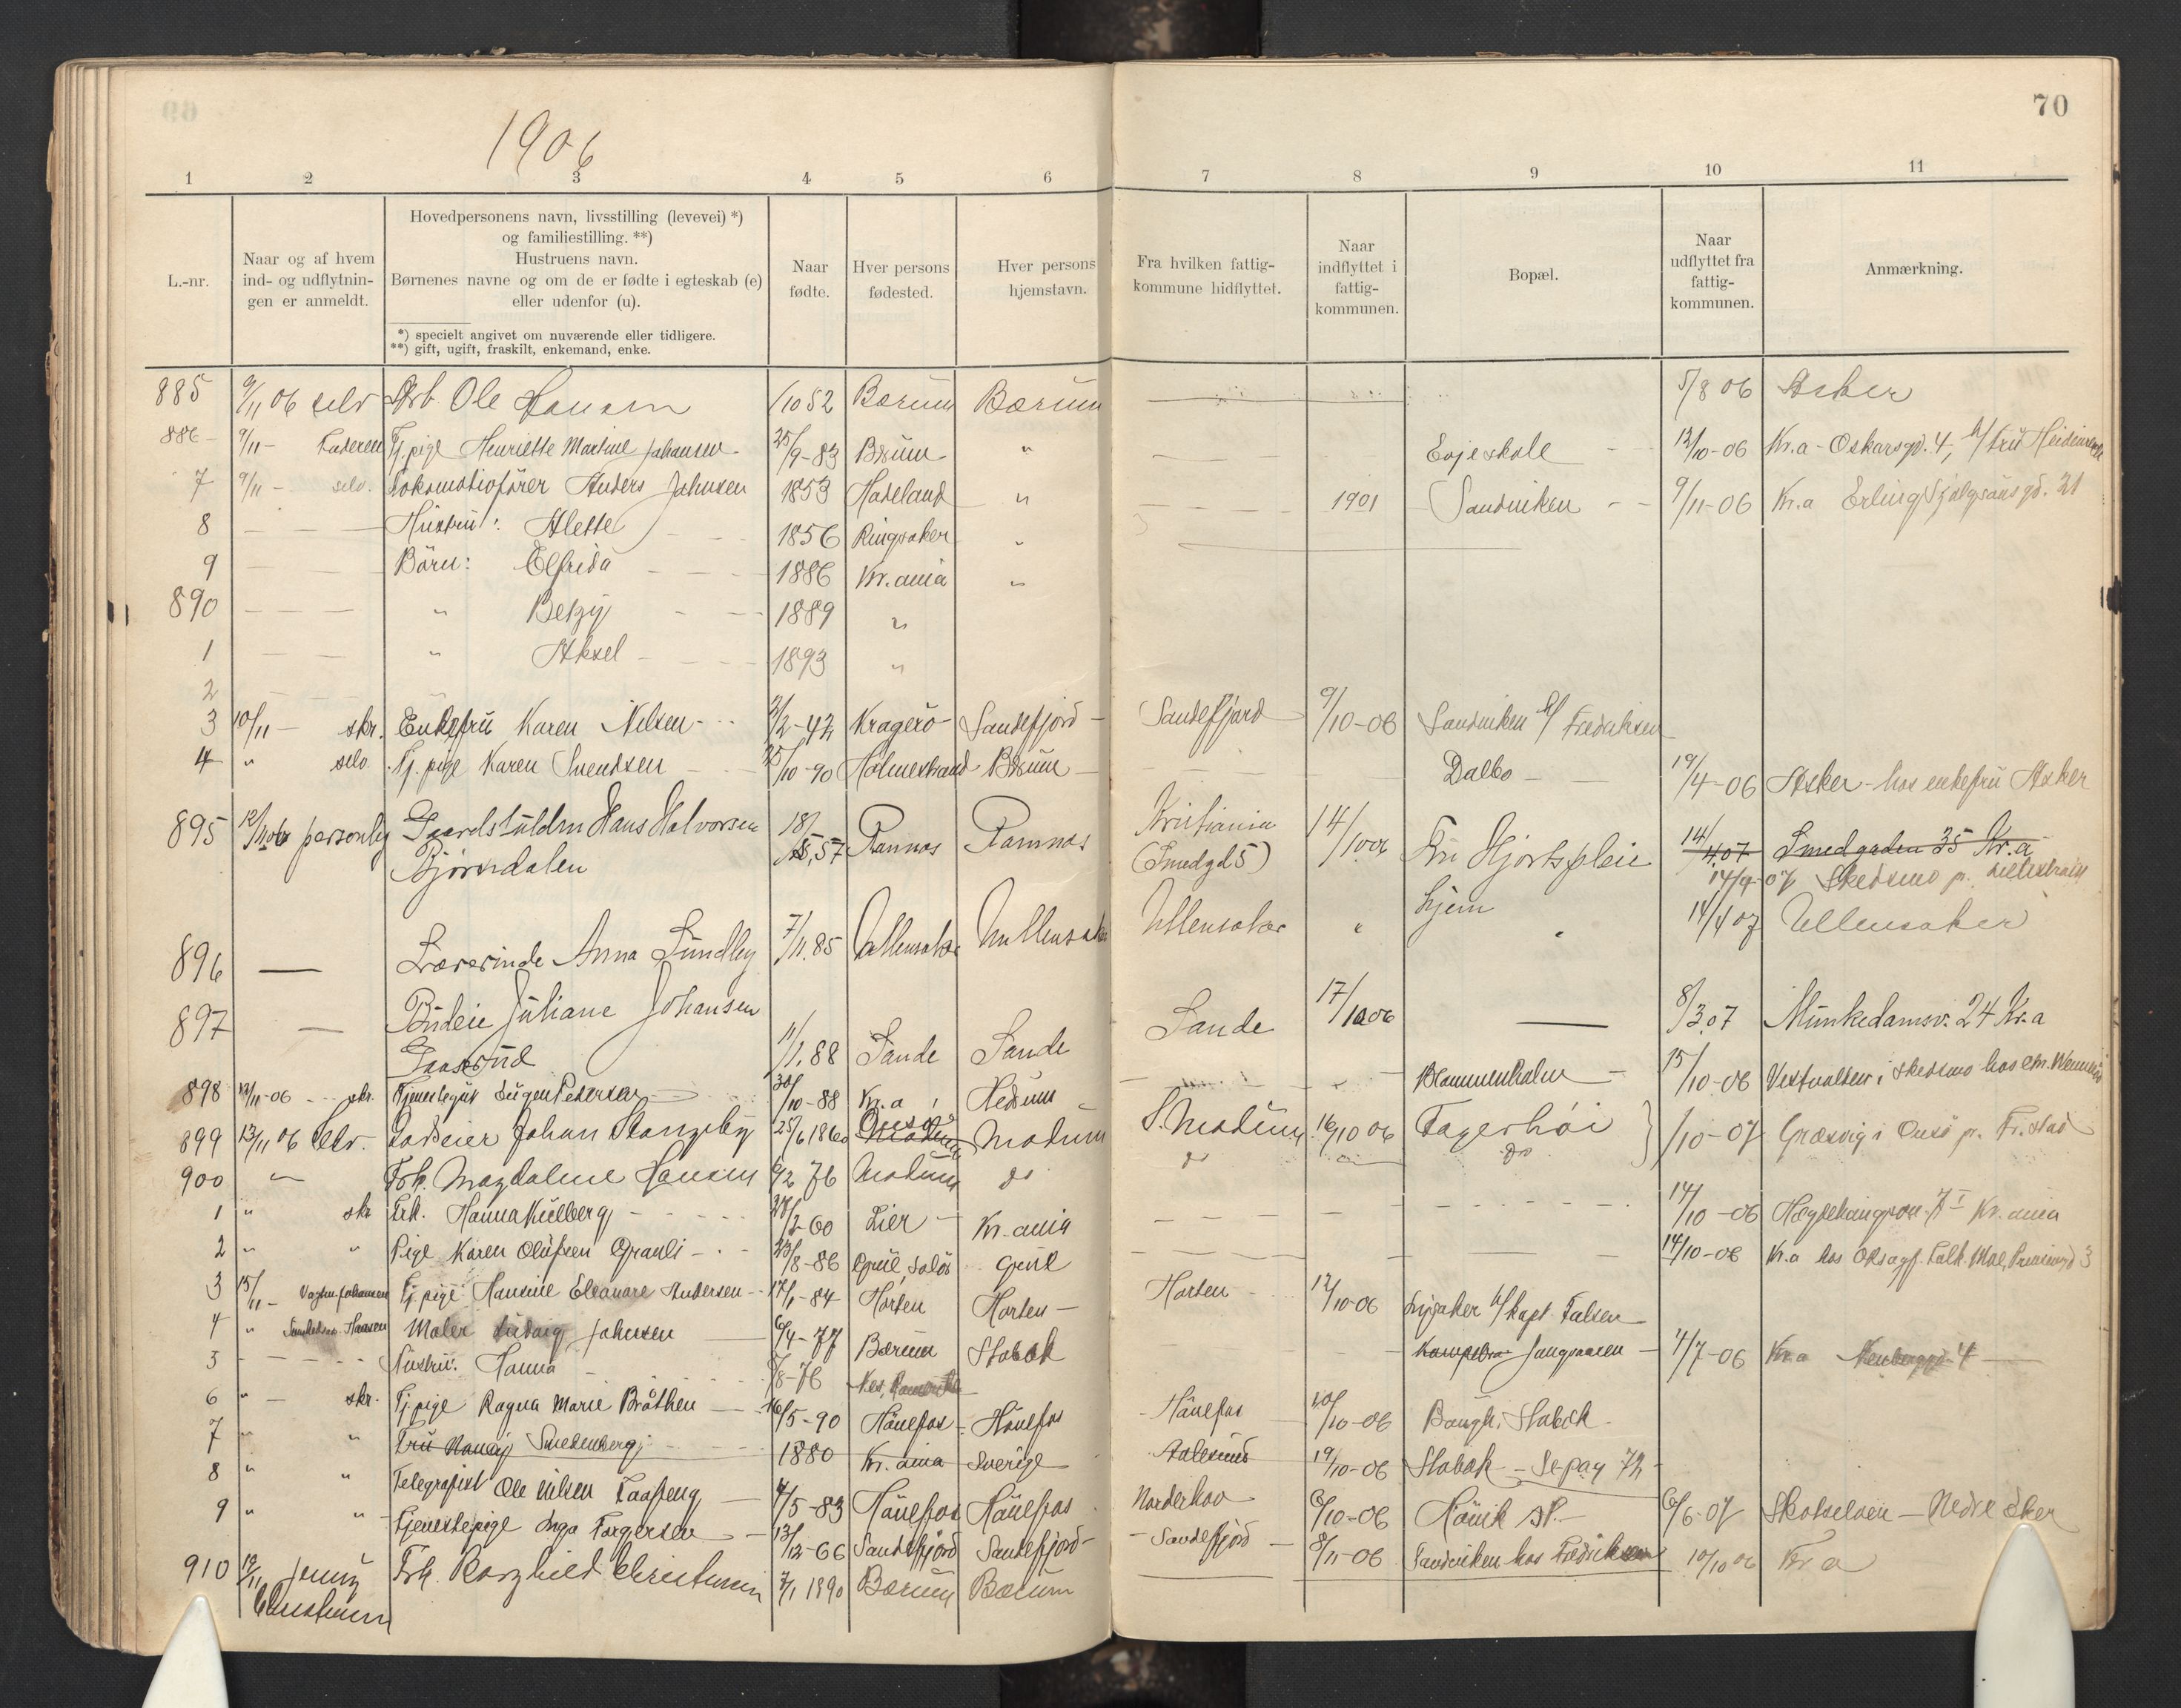 70
1906
1 2 3 4 5 6 7 8 9 10 11
L.-nr.
Naar og af hvem
ind- og udflytnin-
gen er anmeldt.
Hovedpersonens navn, livsstilling (levevei) *)
og familiestilling. **)
Hustruens navn.
Børnenes navne og om de er fødte i egteskab (e)
eller udenfor (u).
*) specielt angivet om nuværende eller tidligere.
**) gift, ugift, fraskilt, enkemand, enke.
Naar
fødte.
Hver persons
fødested.
Hver persons
hjemstavn.
Fra hvilken fattig-
kommune hidflyttet.
Naar
indflyttet i
fattig-
kommunen.
Bopæl.
Naar
udflyttet fra
fattig-
kommunen.
Anmærkning.
885 9/11 06 selv Arb. Ole Hansen 1/10 52 Bærum Bærum 5/8 06 Asker
886 - 9/11 - Faderen Tj.pige Henriette Martine Johansen - 25/9-83 Bærum " Evje skole - 12/10-06 Kr.a - Oskarsgd. 4, h/ fru
7 9/11 - selv. Lokomotivfører Anders Johnsen 1853 Hadeland " 1901 Sandviken - 9/11-06 Kr.a Erling Sjalgsøns gd. 21
8 Hustru: Alette 1856 Ringsaker "
9 Børn: Elfrida 1886 Kr.ania "
890 " Betzy 1889 "
1 " Aksel 1893 "
2
3 10/11 - skr. Enkefru Karen Nilsen - 2/2-42 Kragerø - Sandefjord - Sandefjord 9/10-06 Sandviken h/ Fredriksen
4 " selv. Tj. pige Karen Svendsen 25/10-90 Holmestrand Bærum - Dalbo - 19/4-06 Asker - hos enkefru Asker
895 12/11 06 personlig Hans Halvorsen 18/5,57 Ramnæs Ramnæs Kristiania 14/10 06 Fru Hjorts pleie 14/4.07 Smedgaden 35 Kr.a
Bjørndalen (Smedgd 5) hjem 14/9-07 Skedsmo p. Lillestrøm
896 — Lærerinde Anna Sundby 7/11.85 Ullensaker Ullensaker Ullensaker " " 14/4 07 Ullensaker
897 — Budeie Juliane Johansen Sande 17/10 06 — 8/3.07 Munkedamsv. 24 Kr.a
11/1.88 Sande Sande
898 12/11-06 - skr. Tjenestegut Eugen Pedersen 30/10-88 Kr.a Blommenholm - 15/10-06 i Skedsmo hos
899 13/11 06 Selv. Johan Stangeby 25/6 1860 Onsø Modum Modum S. Modum 16/10 06 Fagerhøi } /10-07 Græsvig i Onsø p. Fr.stad
900 " Frk. Magdalene Hansen 6/12 76 Modum do do " do
1 " skr Frk. Hanna Kulberg - 28/2-60 Lier - Kr.ania 14/10-06 Kr.ania
2 " " Pige Karen Olufsen Grauli - 23/8-86 Grue, Solør Grue 14/10-06 Kr.a hos
3 15/11 - Tj.pige Hansine Eleonore Andersen - 17/1-84 Horten Horten - Horten - 12/10-06 Lysaker h/ Kapt. Falsen
4 " Maler Ludvig Johnsen 6/4-77 Bærum Stabæk Jongsaasen - 1/7-06 Kr.a 4
5 Hustru. Hanna - 5/8-76 Nes, Romerike
6 " - skr. Tj.pige Ragna Marie Bråthen - 16/5-90 Hønefos - Hønefos - Hønefos 20/10-06 Stabæk -
7 " " Fru Nancy Swedenborg 1880 Kr.ania Sverige Aalesund 19/10-06 Stabæk - Se pag 72 -
8 " " Telegrafist Ole Nilsen 4/5-83 Hønefos Hønefos Norderhov 6/10-06 Høvik st. - 6/6-07 Skotselven - Nedre Eker
9 " " Tjenestepige Inga Torgersen - 13/12-66 Sandefjord Sandefjord - - Sandefjord 8/11-06 Sandviken hos Fredriksen 10/10 06 Kr a
910 19/11 Jenny Frk. Borghild Christensen 7/1 1890 Bærum Bærum